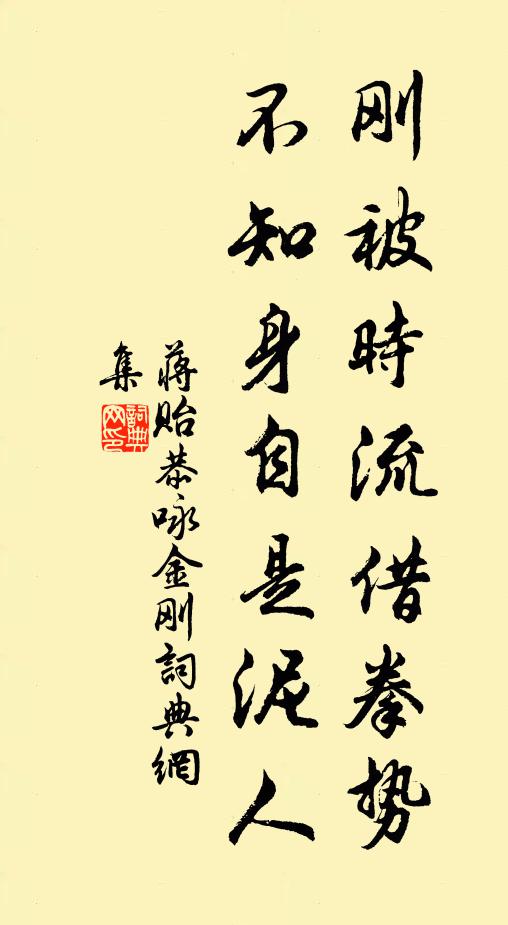 刚被時流借拳势
不知身自是泥人
蒋贻恭咏金刚詞典網
集
詞典网印